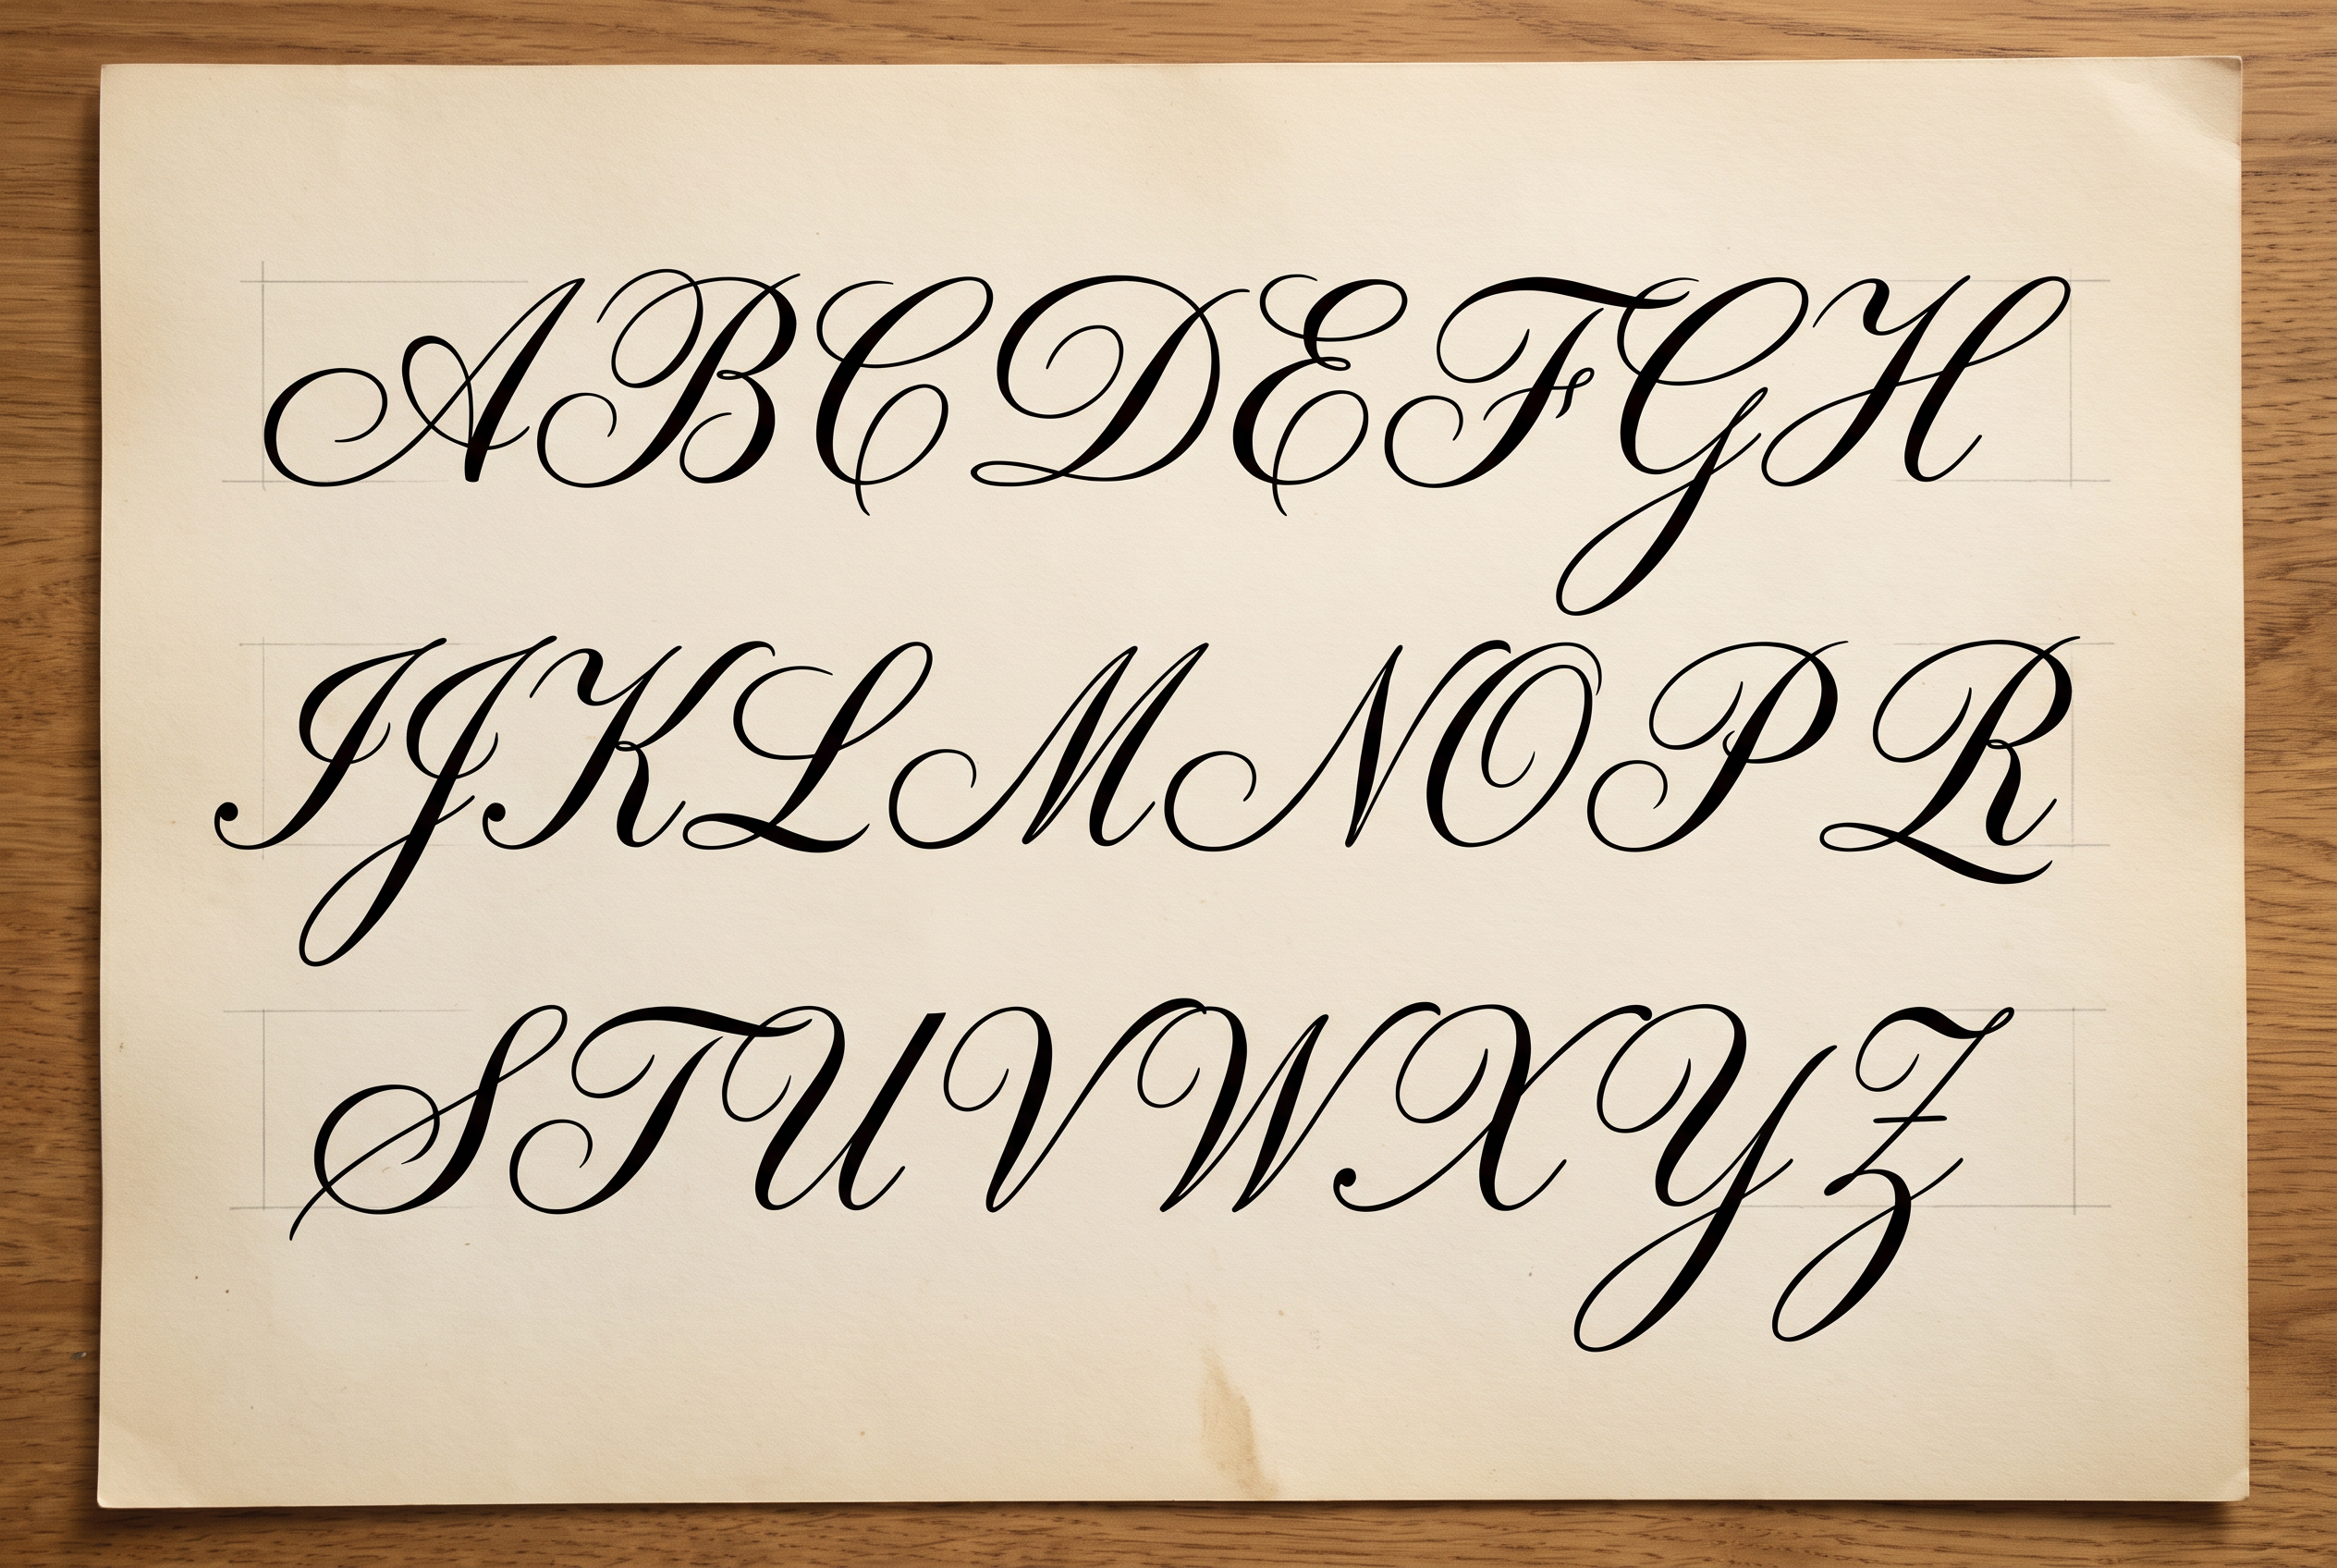 ABCDEFGH
IJKLMNOPR
STUVWXYZ